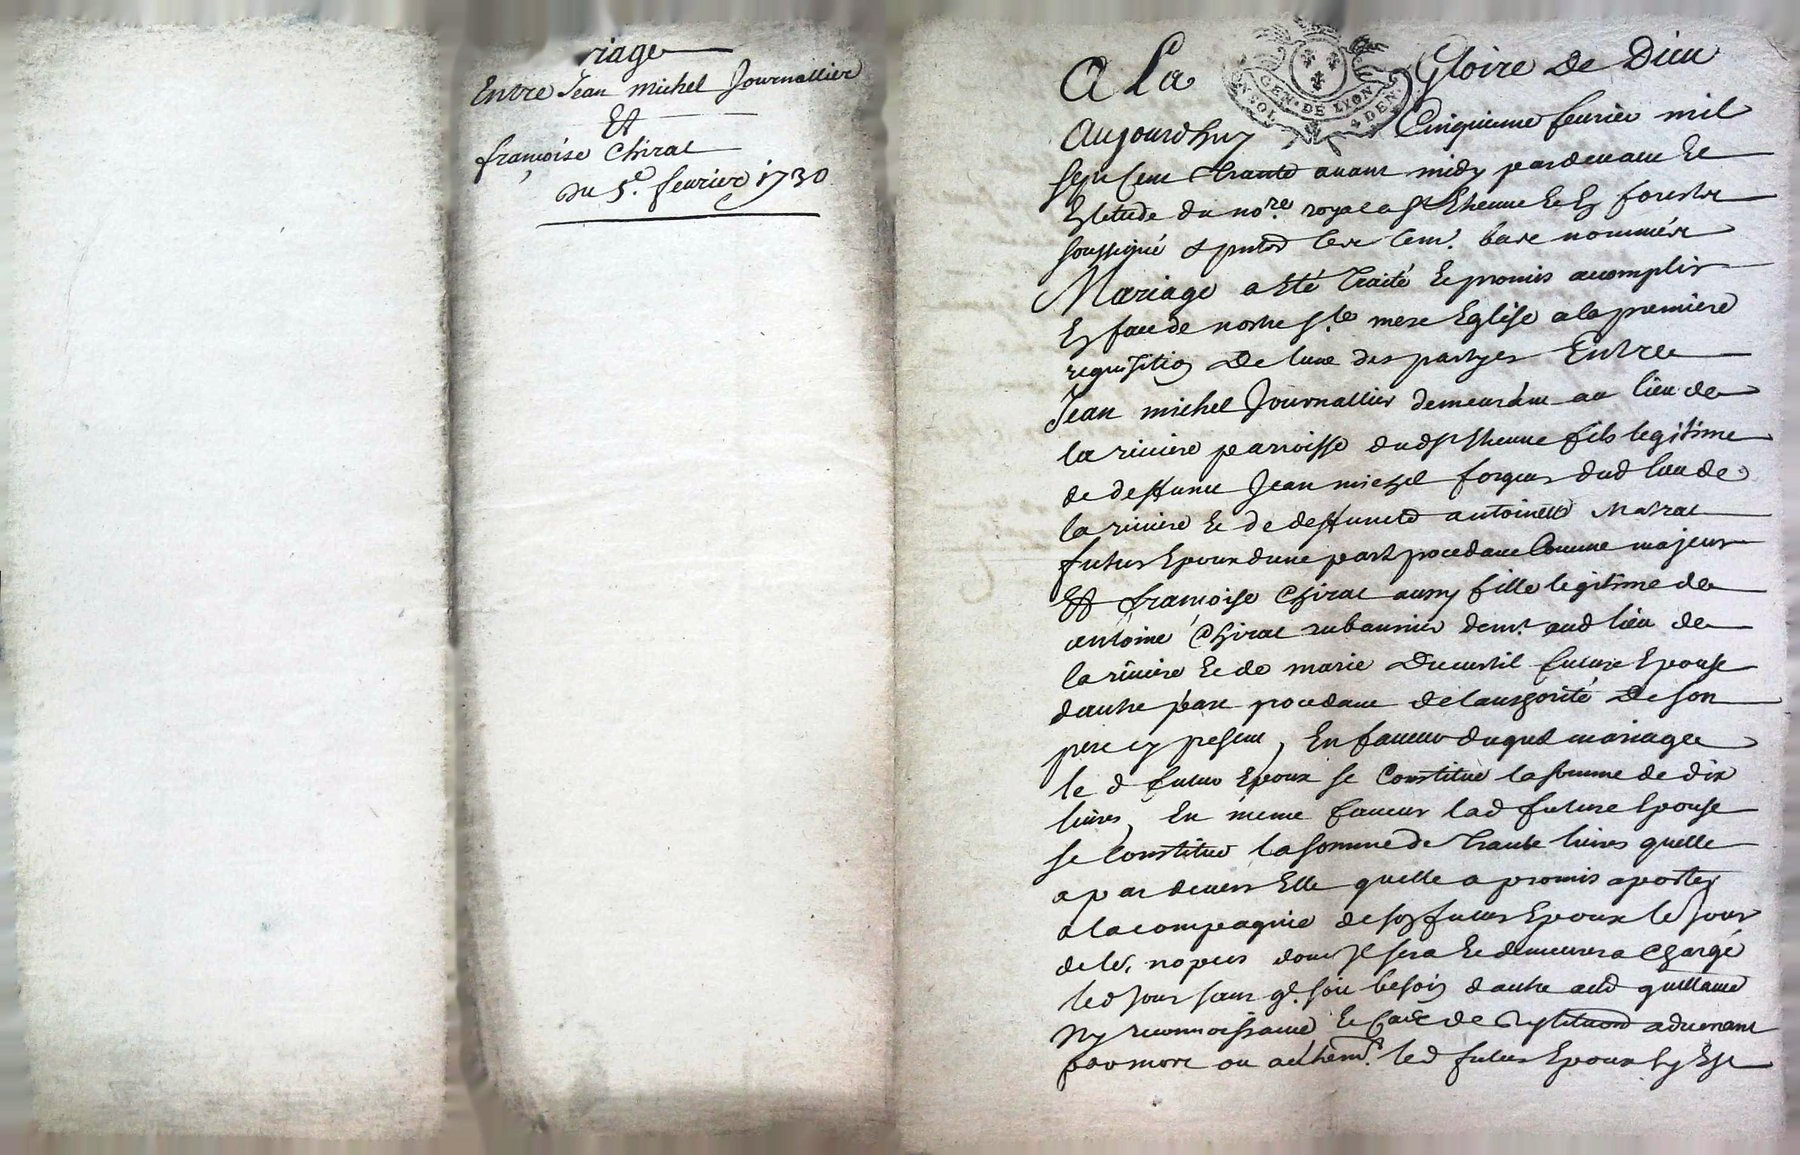 riage
Entre Jean michel Journallier
Et
françoise Chirat
du 5e. fevrier 1730
A La Gloire de Dieu
GEN. DE LYON
Aujourdhuy Cinquieme fevrier mil
sept cent trante avant midy pardevant le
soussigné &
Mariage a Eté traité Et promis acomplir
En face de nostre Ste mere Eglise a la premiere
requisition de lune des partyes Entre
Jean michel Journallier demeurant au lieu de
la riviere parroisse dud St Etienne fils legitime
de deffunt Jean michel forgeur dud lieu de
la riviere Et de deffuncte antoinette
futur Epoux dune part procedant Comme majeur
Et françoise Chirat aussy fille legitime de
antoine Chirat rubannier demt. aud lieu de
la riviere Et de marie future Epouse
dautre part procedant de lauthorité de son
pere cy present, En faveur duquel mariage
le d futur Epoux se Constitue la somme de dix
livres, En meme faveur lad future Epouse
se Constitue la somme de trante livres quelle
a par devers Elle quelle a promis aporter
a la compagnie de son futur Epoux le jour
de leurs nopces dont Il sera Et demeurera Chargé
led jour sans quil soit besoin dautre acte quittance
ny reconnoissance Et Cas de Restitution advenant
par mort ou autremt. led futur Epoux